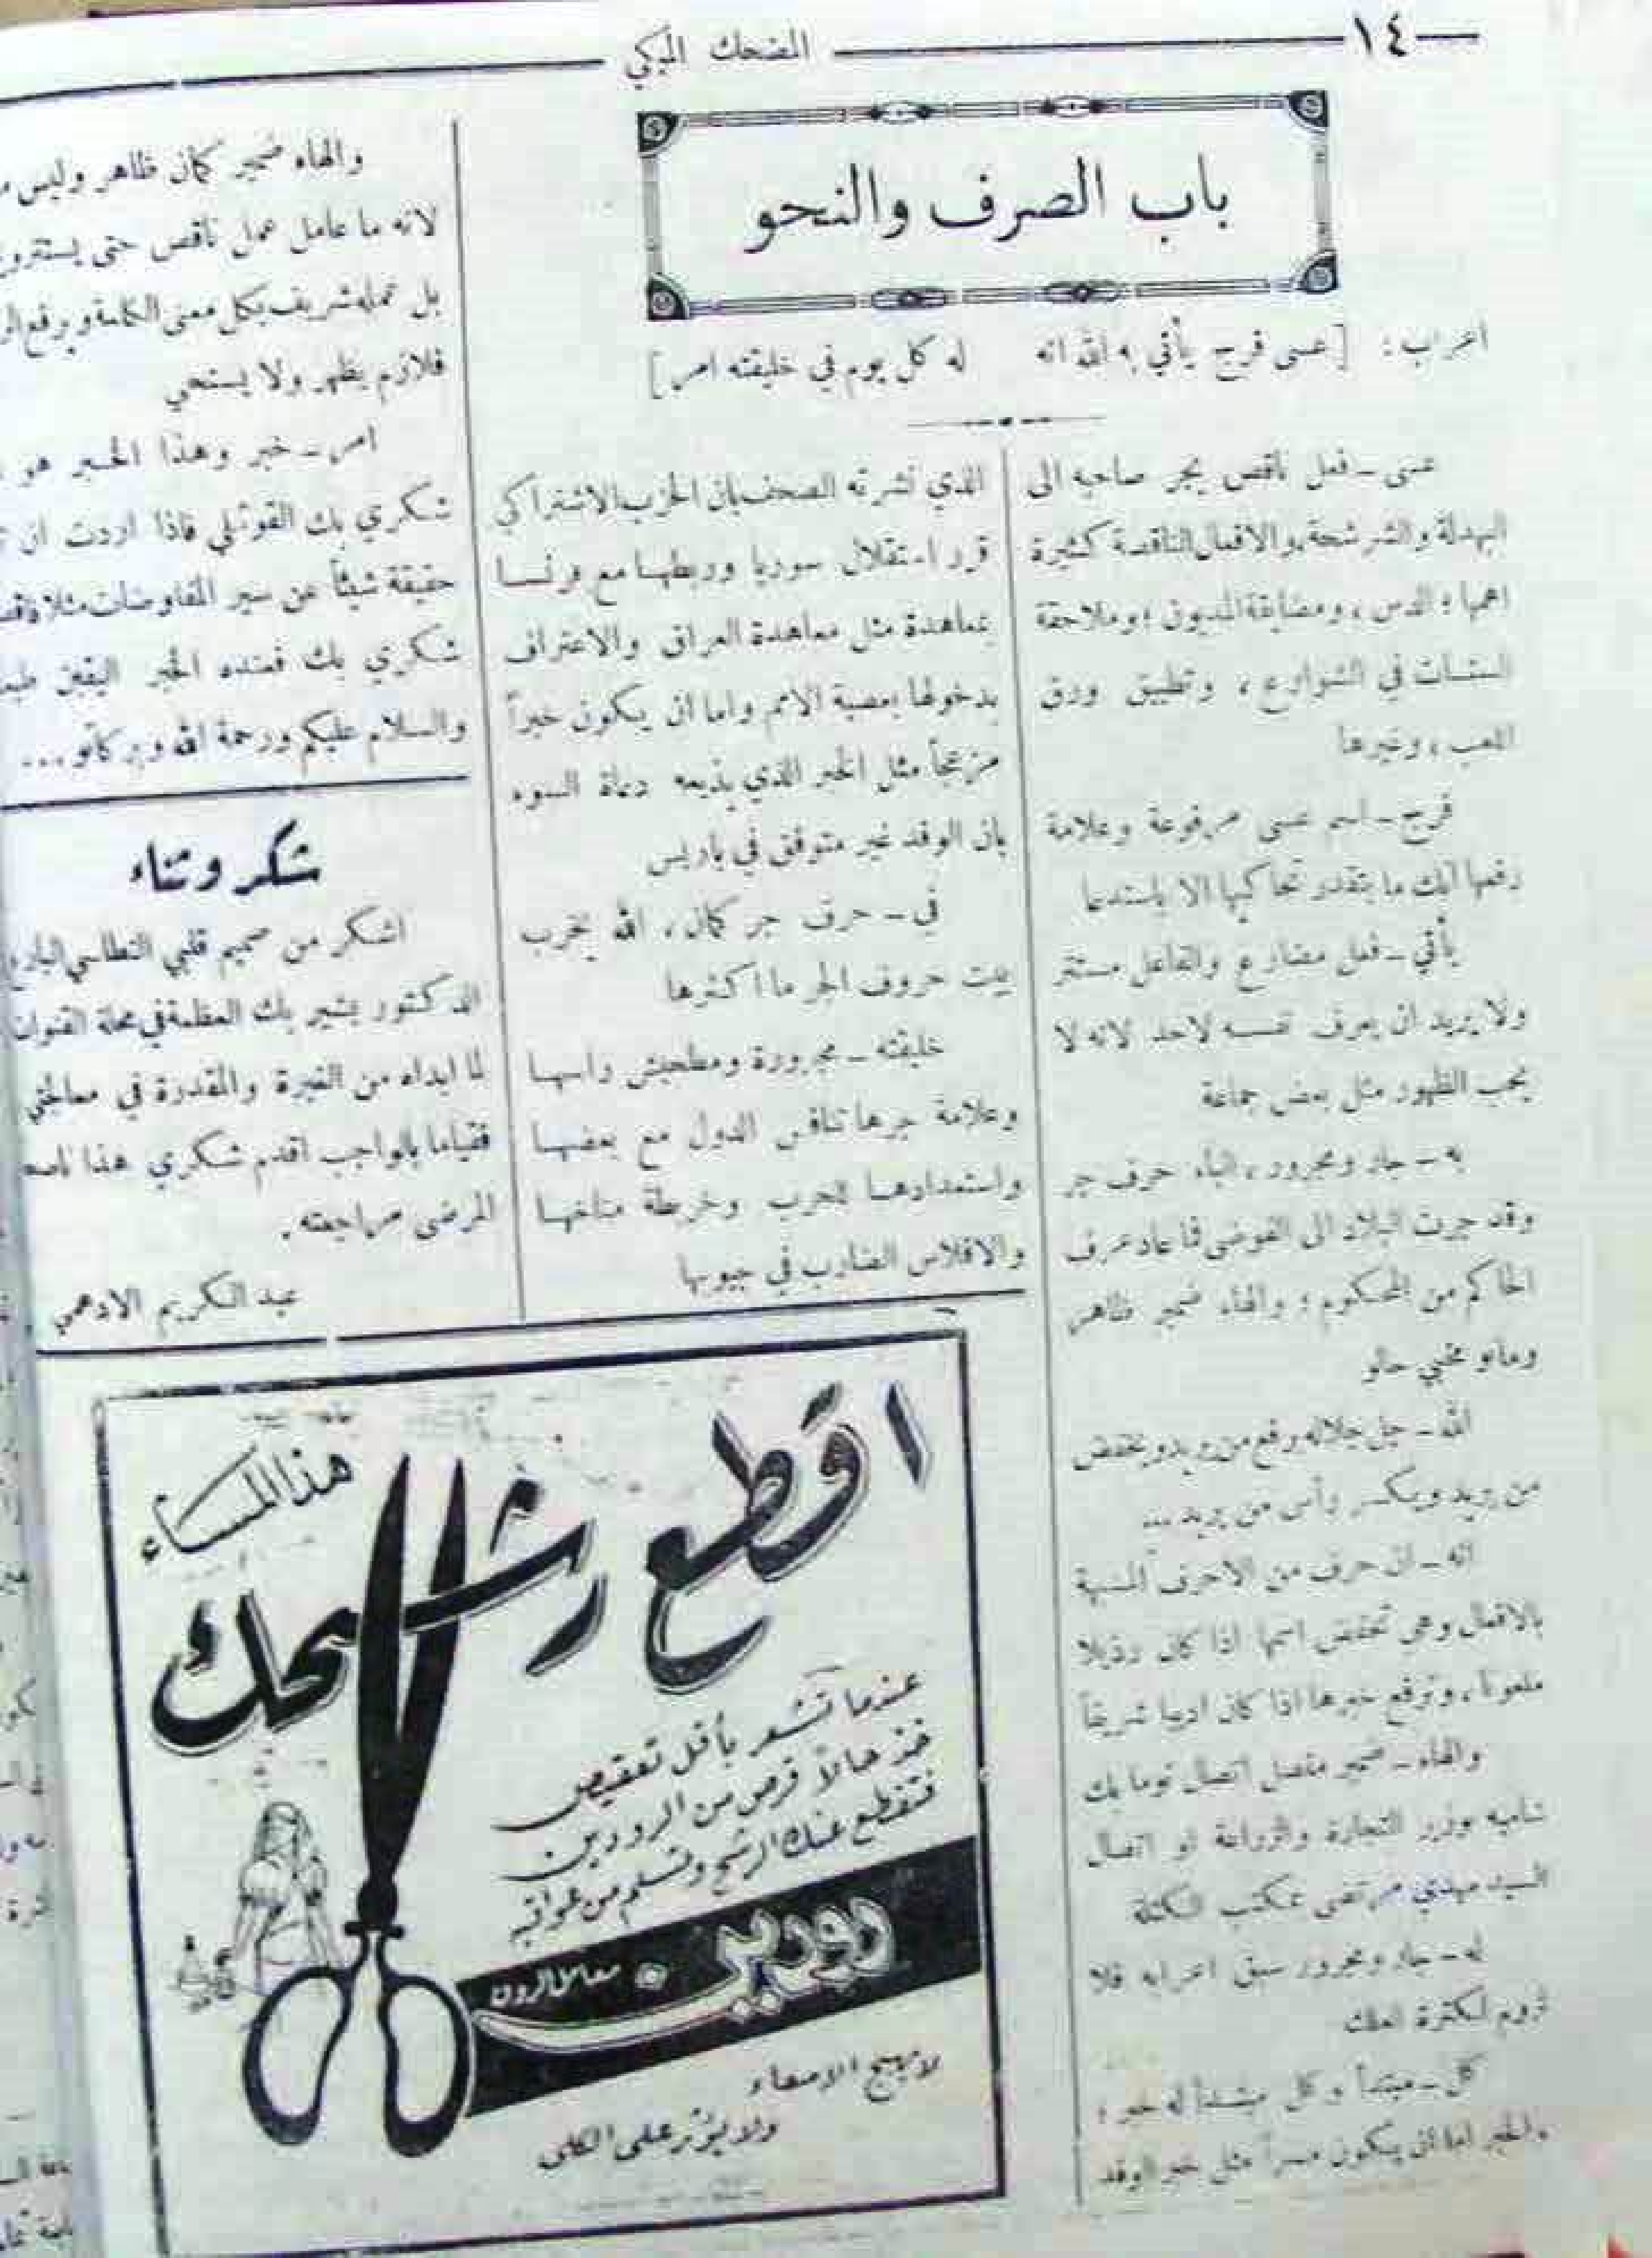 ١٤
المضحك المبكي
باب الصرف والنحو
اعراب : [عسى فرج يأتي به الله انه له كل يوم في خليقته امر]
عسى ـ فعل ناقص يجر صاحبه الى
البهدلة والشرشحة، والافعال الناقصة كثيرة
اهمها : الدس ، ومضايقة المديون ، وملاحقة
الستات في الشوارع ، وتطبيق ورق
اللعب ، وغيرها
فرج ـ اسم عسى مرفوعة وعلامة
رفعها انك ما بتقدر تحاكيها الا بالستدعا
يأتي ـ فعل مضارع والفاعل مستتر
ولا يريد ان يعرف نفسه لاحد لانه لا
يحب الظهور مثل بعض جماعة
به ـ جار ومجرور ، الباء حرف جر
وقد جرت البلاد الى الفوضى فما عاد عرف
الحاكم من المحكوم ؛ والهاء ضمير ظاهر
ومانو مخبي حالو
الله ـ جل جلاله يرفع من يريد ويخفض
من يريد ويكسر رأس من يريد ...
انه ـ ان حرف من الاحرف المشبهة
بالافعال وهي تخفض اسمها اذا كان رذيلا
ملعونا ، وترفع خبرها اذا كان اديبا شريفاً
والهاء ـ ضمير متصل اتصال توما بك
شاميه بوزير التجارة والزراعة او اتصال
السيد مهدي مرتضى بمكتب الكتلة
له ـ جار ومجرور سبق اعرابه فلا
لزوم لكثرة العلك
كل ـ مبتدأ وكل مبتدأ له خبر ؛
والخبر اما ان يكون مسراً مثل خبر الوفد
الذي نشرته الصحف بان الحزب الاشتراكي
قرر استقلال سوريا وربطها مع فرنسا
بمعاهدة مثل معاهدة العراق والاعتراف
بدخولها بعصبة الامم واما ان يكون خبراً
مزعجاً مثل الخبر الذي يذيعه دعاة السوء
بان الوفد غير متوفق في باريس
في ـ حرف جر كمان ، الله يخرب
بيت حروف الجر ما اكثرها
خليقته ـ مجرورة ومطحبش راسها
وعلامة جرها تنافس الدول مع بعضها
واستعدادها للحرب وخربطة مناخها
والافلاس الضارب في جيوبها
والهاء ضمير كمان ظاهر وليس
لانه ما عامل عمل ناقص حتى يستتر
بل عمله شريف بكل معنى الكلمة ويرفع
فلازم يظهر ولا يستحي
امر ـ خبر وهذا الخبر هو
شكري بك القوتلي فاذا اردت ان
حقيقة شيئاً عن سير المفاوضات مثلا
شكري بك فعنده الخبر اليقين
والسلام عليكم ورحمة الله وبركاتو ...
شكر وثناء
اشكر من صميم قلبي النطاسي البارع
الدكتور بشير بك العظمة في محلة القنوات
لما ابداه من الغيرة والمقدرة في معالجتي
فقياما بالواجب اقدم شكري هذا
المرضى مراجعته .
عبد الكريم الادهمي
اقطع رشحك
هذا المساء
عندما تشعر بأقل تعقيص
خذ حالاً قرص من الرودين
فتقطع عنك الرشح وتسلم من عواقبه
رودين
معامل الرون
لا يهيج الامعاء
ولا يؤثر على الكلى